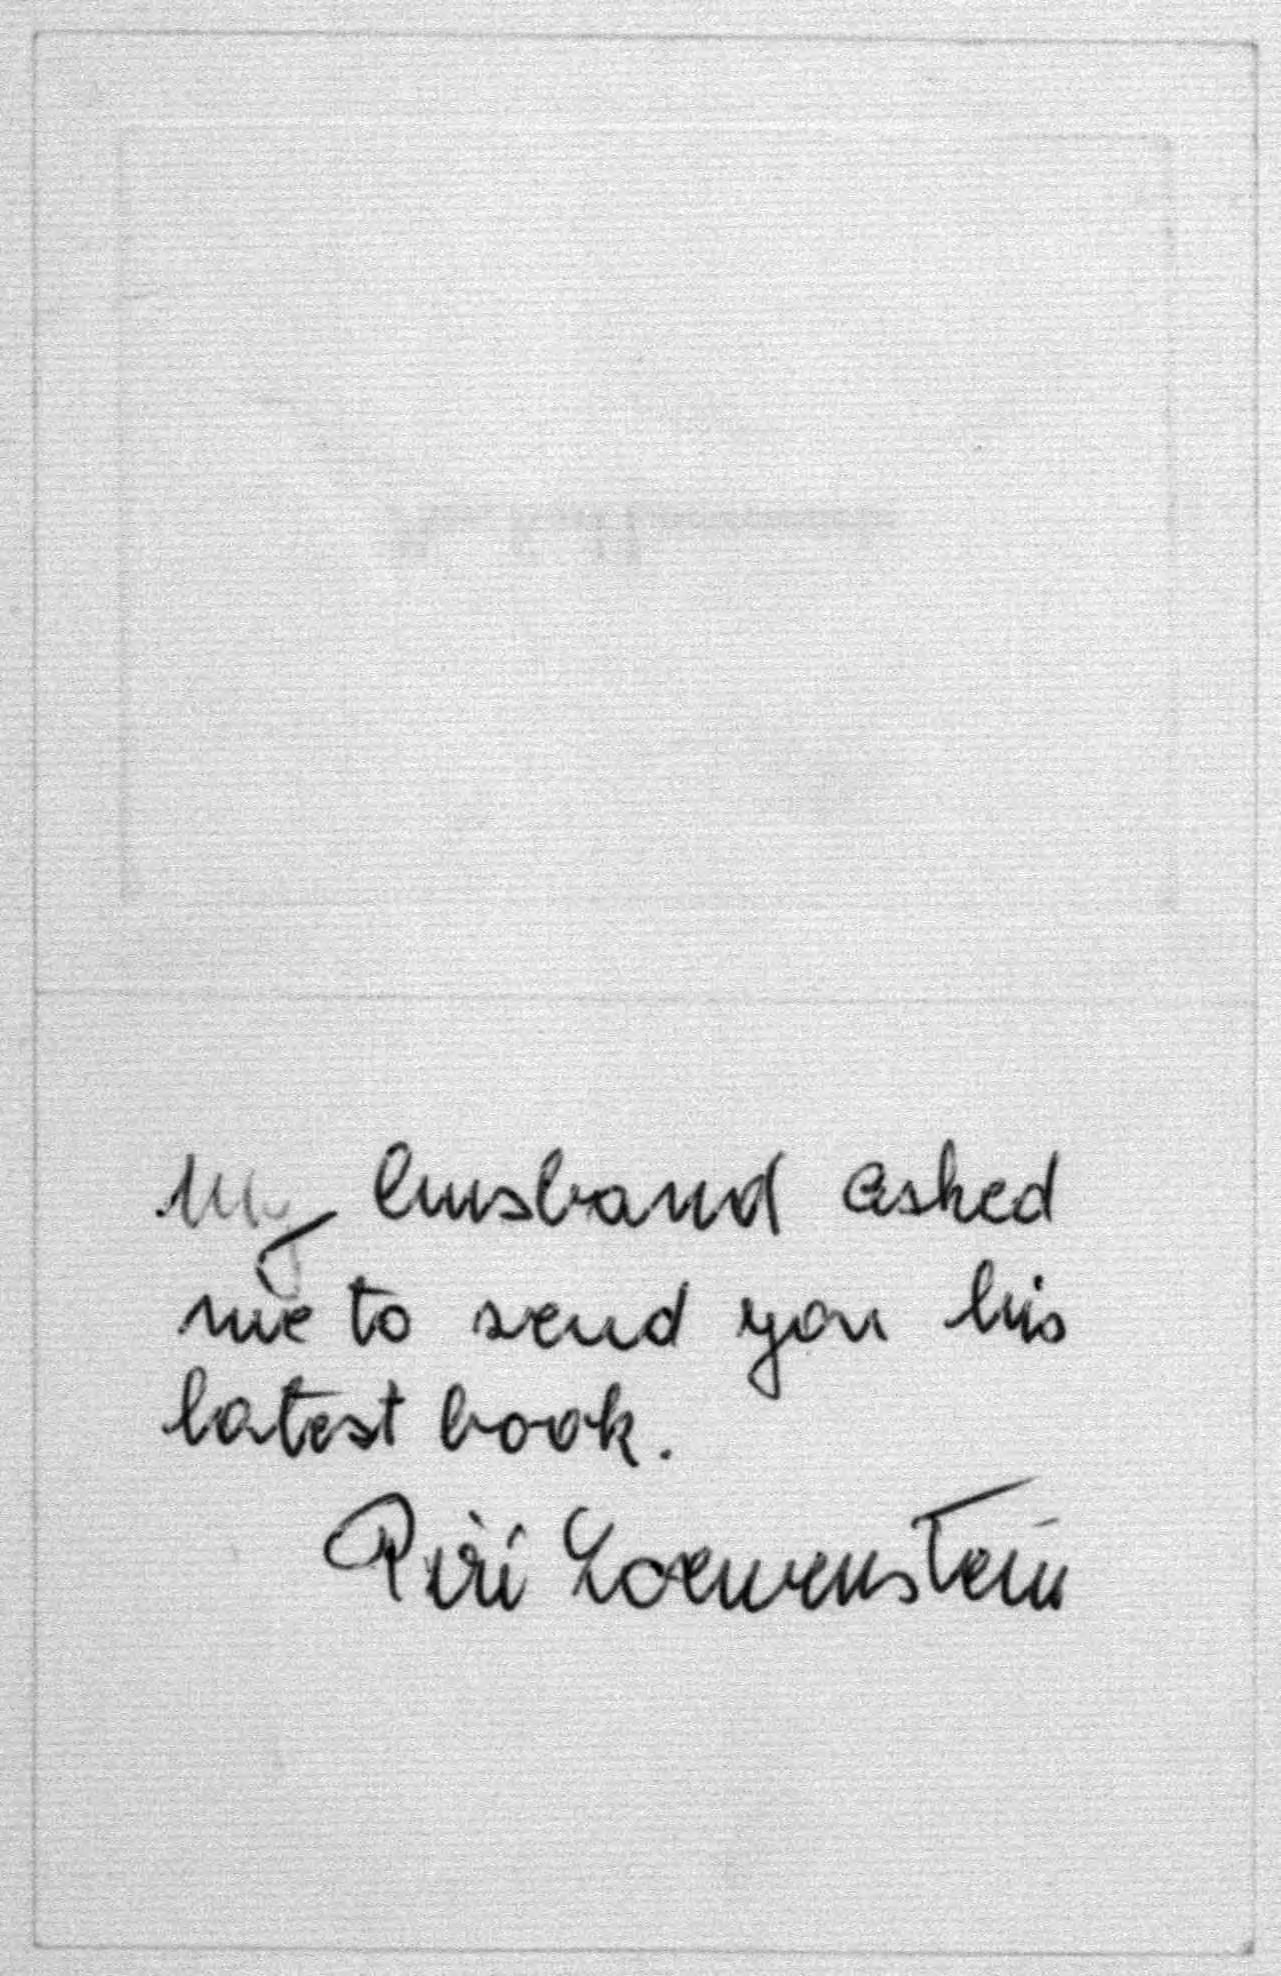 My husband asked
me to send you his
latest book.
Piri Loewenstein